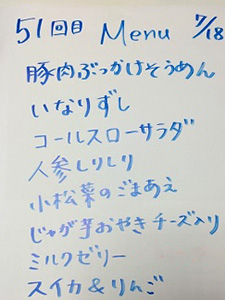 51回目 Menu 7/18
豚肉ぶっかけそうめん
いなりずし
コールスローサラダ
人参しりしり
小松菜のごまあえ
じゃが芋おやきチーズ入り
ミルクゼリー
スイカ&りんご